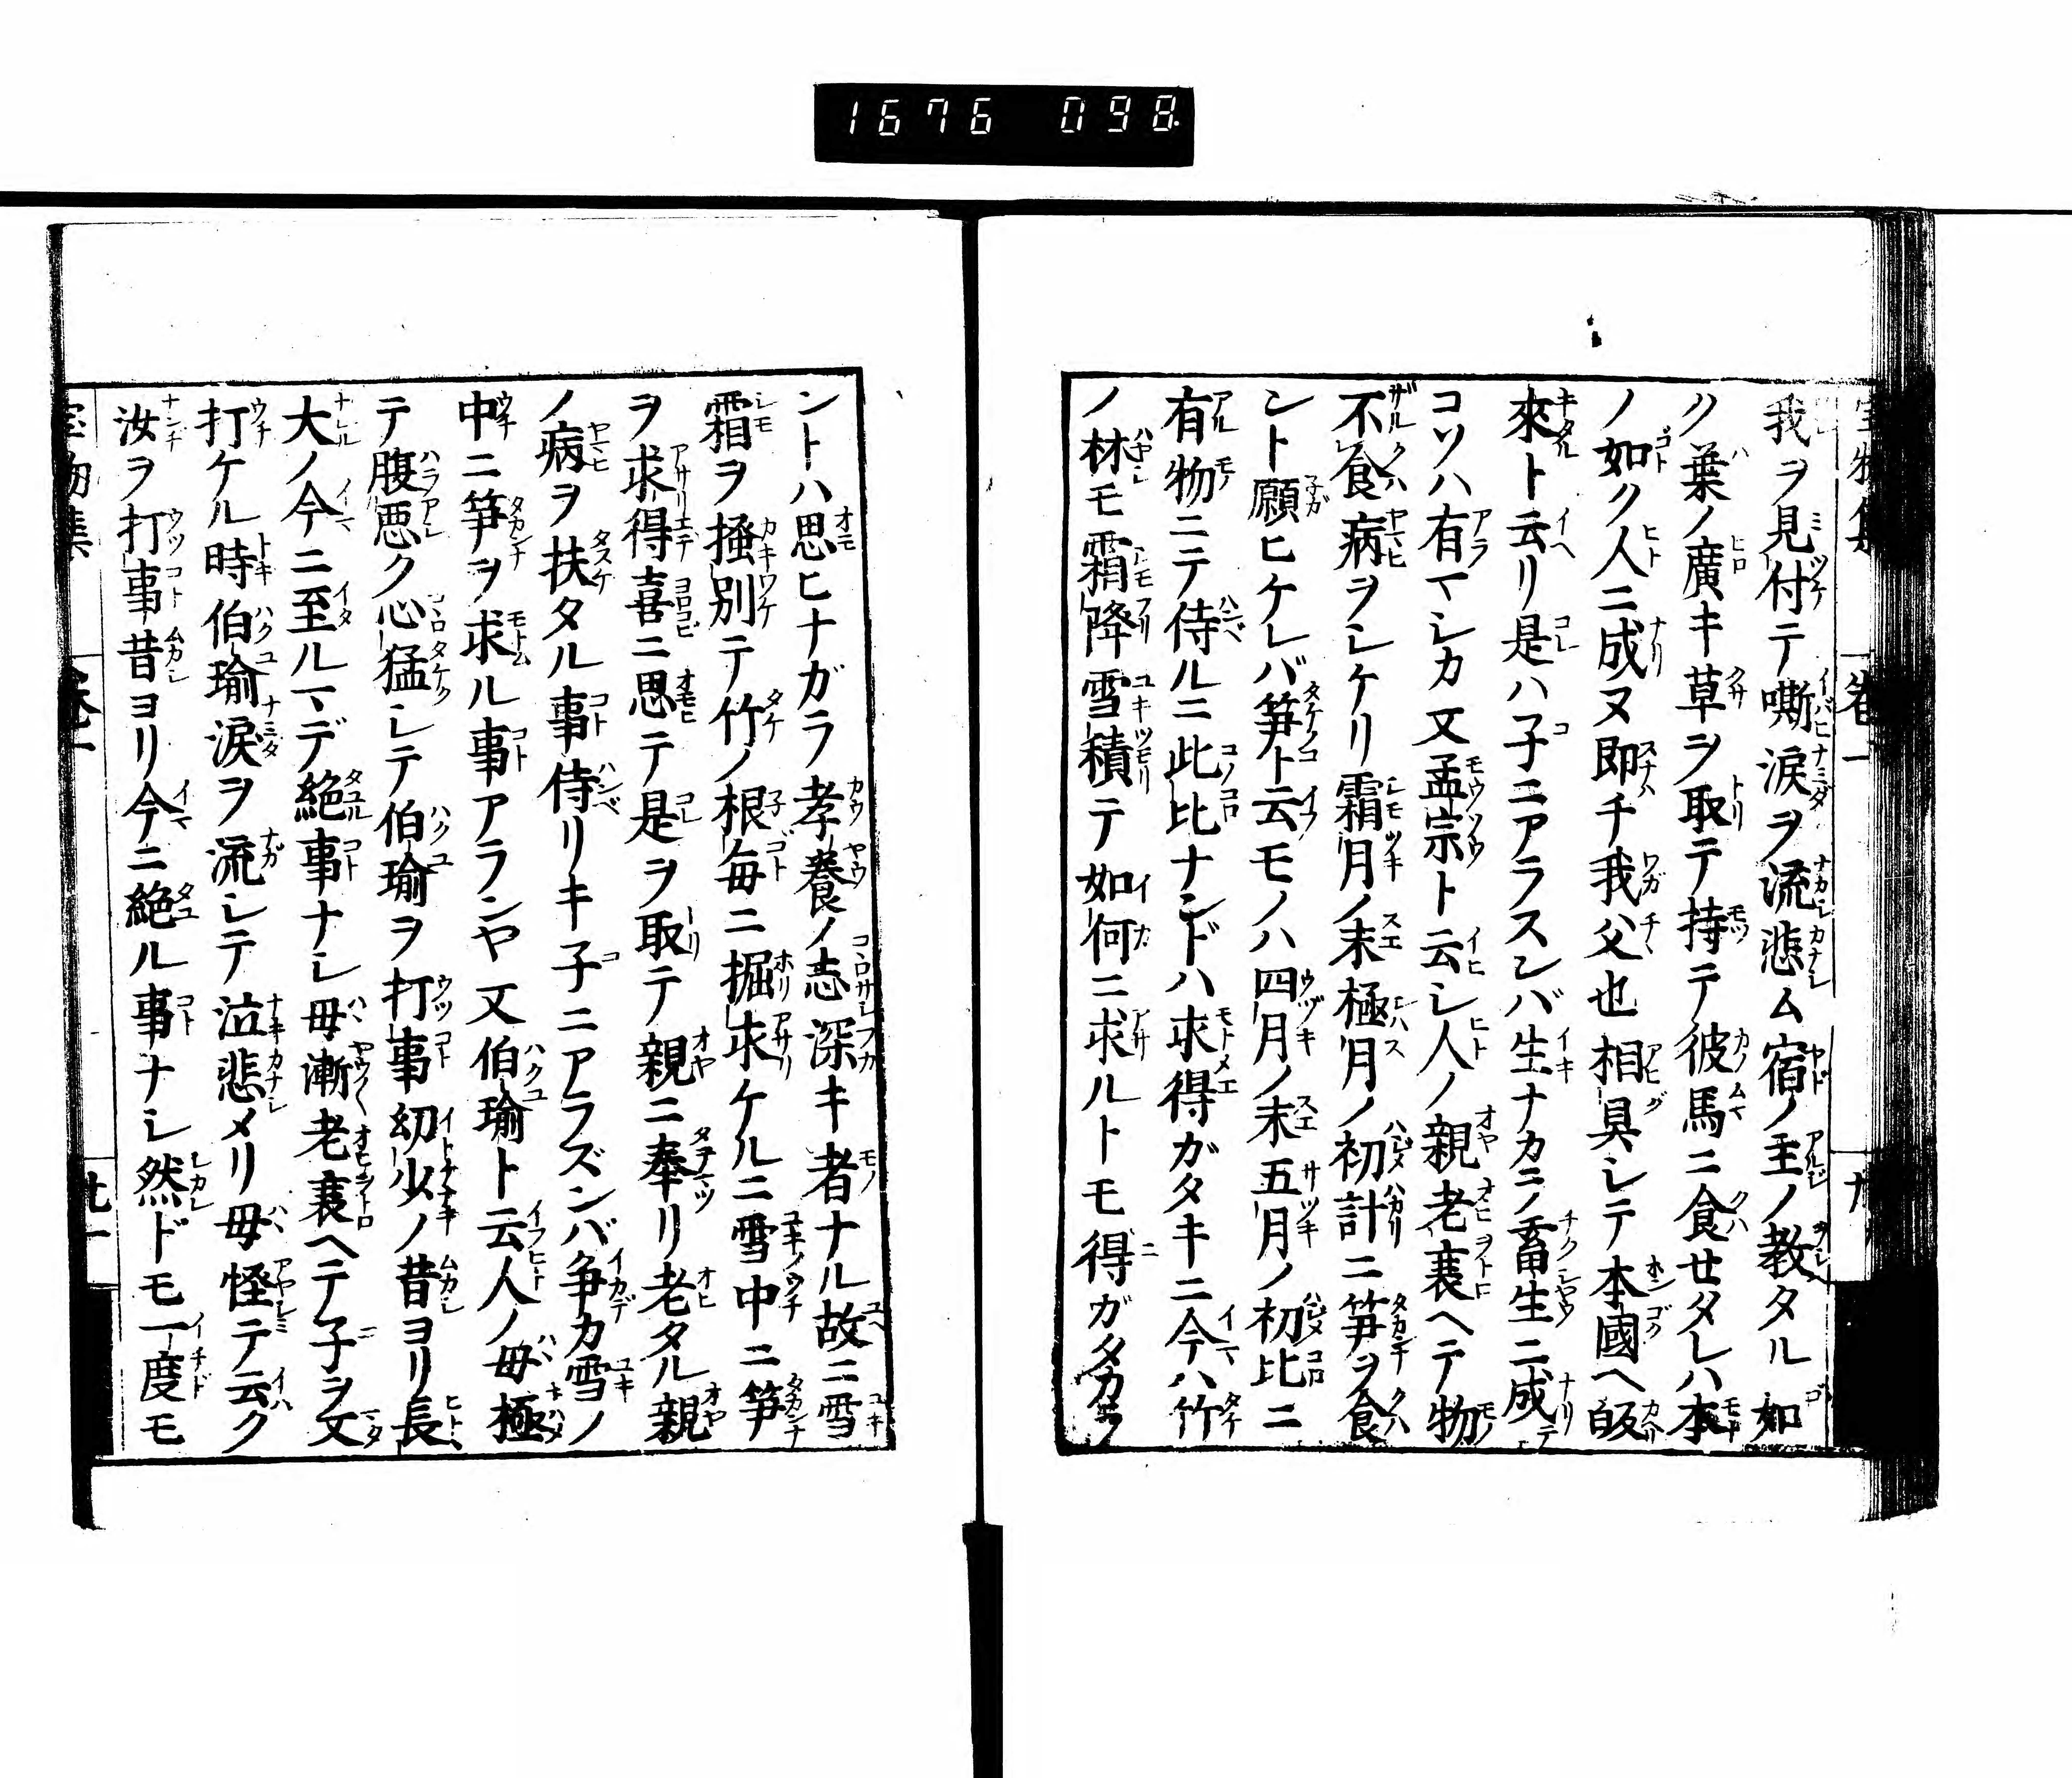 1676 098
我ヲ見付テ嘶涙ヲ流悲ム宿ノ主ノ教タル如
ク葉ノ廣キ草ヲ取テ持テ彼馬ニ食せタレハ本
ノ如ク人ニ成ヌ即チ我父也相具シテ本國ヘ皈
來ト云リ是ハ子ニアラスンバ生ナカラ畜生ニ成テ
コソハ有マシカ又孟宗ト云シ人ノ親老衰ヘテ物
不食病ヲシケリ霜月ノ末極月ノ初計ニ笋ヲ食
ント願ヒケレバ笋ト云モノハ四月ノ末五月ノ初比ニ
有物ニテ侍ルニ此比ナンドハ求得ガタキニ今ハ竹
ノ林モ霜降雪積テ如何ニ求ルトモ得ガタカラ
ントハ思ヒナガラ孝養ノ志深キ者ナル故ニ雪
霜ヲ掻別テ竹ノ根毎ニ掘求ケルニ雪中ニ笋
ヲ求得喜ニ思テ是ヲ取テ親ニ奉リ老タル親
ノ病ヲ扶タル事侍リキ子ニアラズンバ争カ雪ノ
中ニ笋ヲ求ル事アランヤ又伯瑜ト云人ノ母極
テ腹悪ク心猛シテ伯瑜ヲ打事幼少ノ昔ヨリ長
大ノ今ニ至ルマデ絶事ナシ母漸老衰ヘテ子ヲ又
打ケル時伯瑜涙ヲ流シテ泣悲メリ母怪テ云ク
汝ヲ打事昔ヨリ今ニ絶ル事ナシ然ドモ一度モ